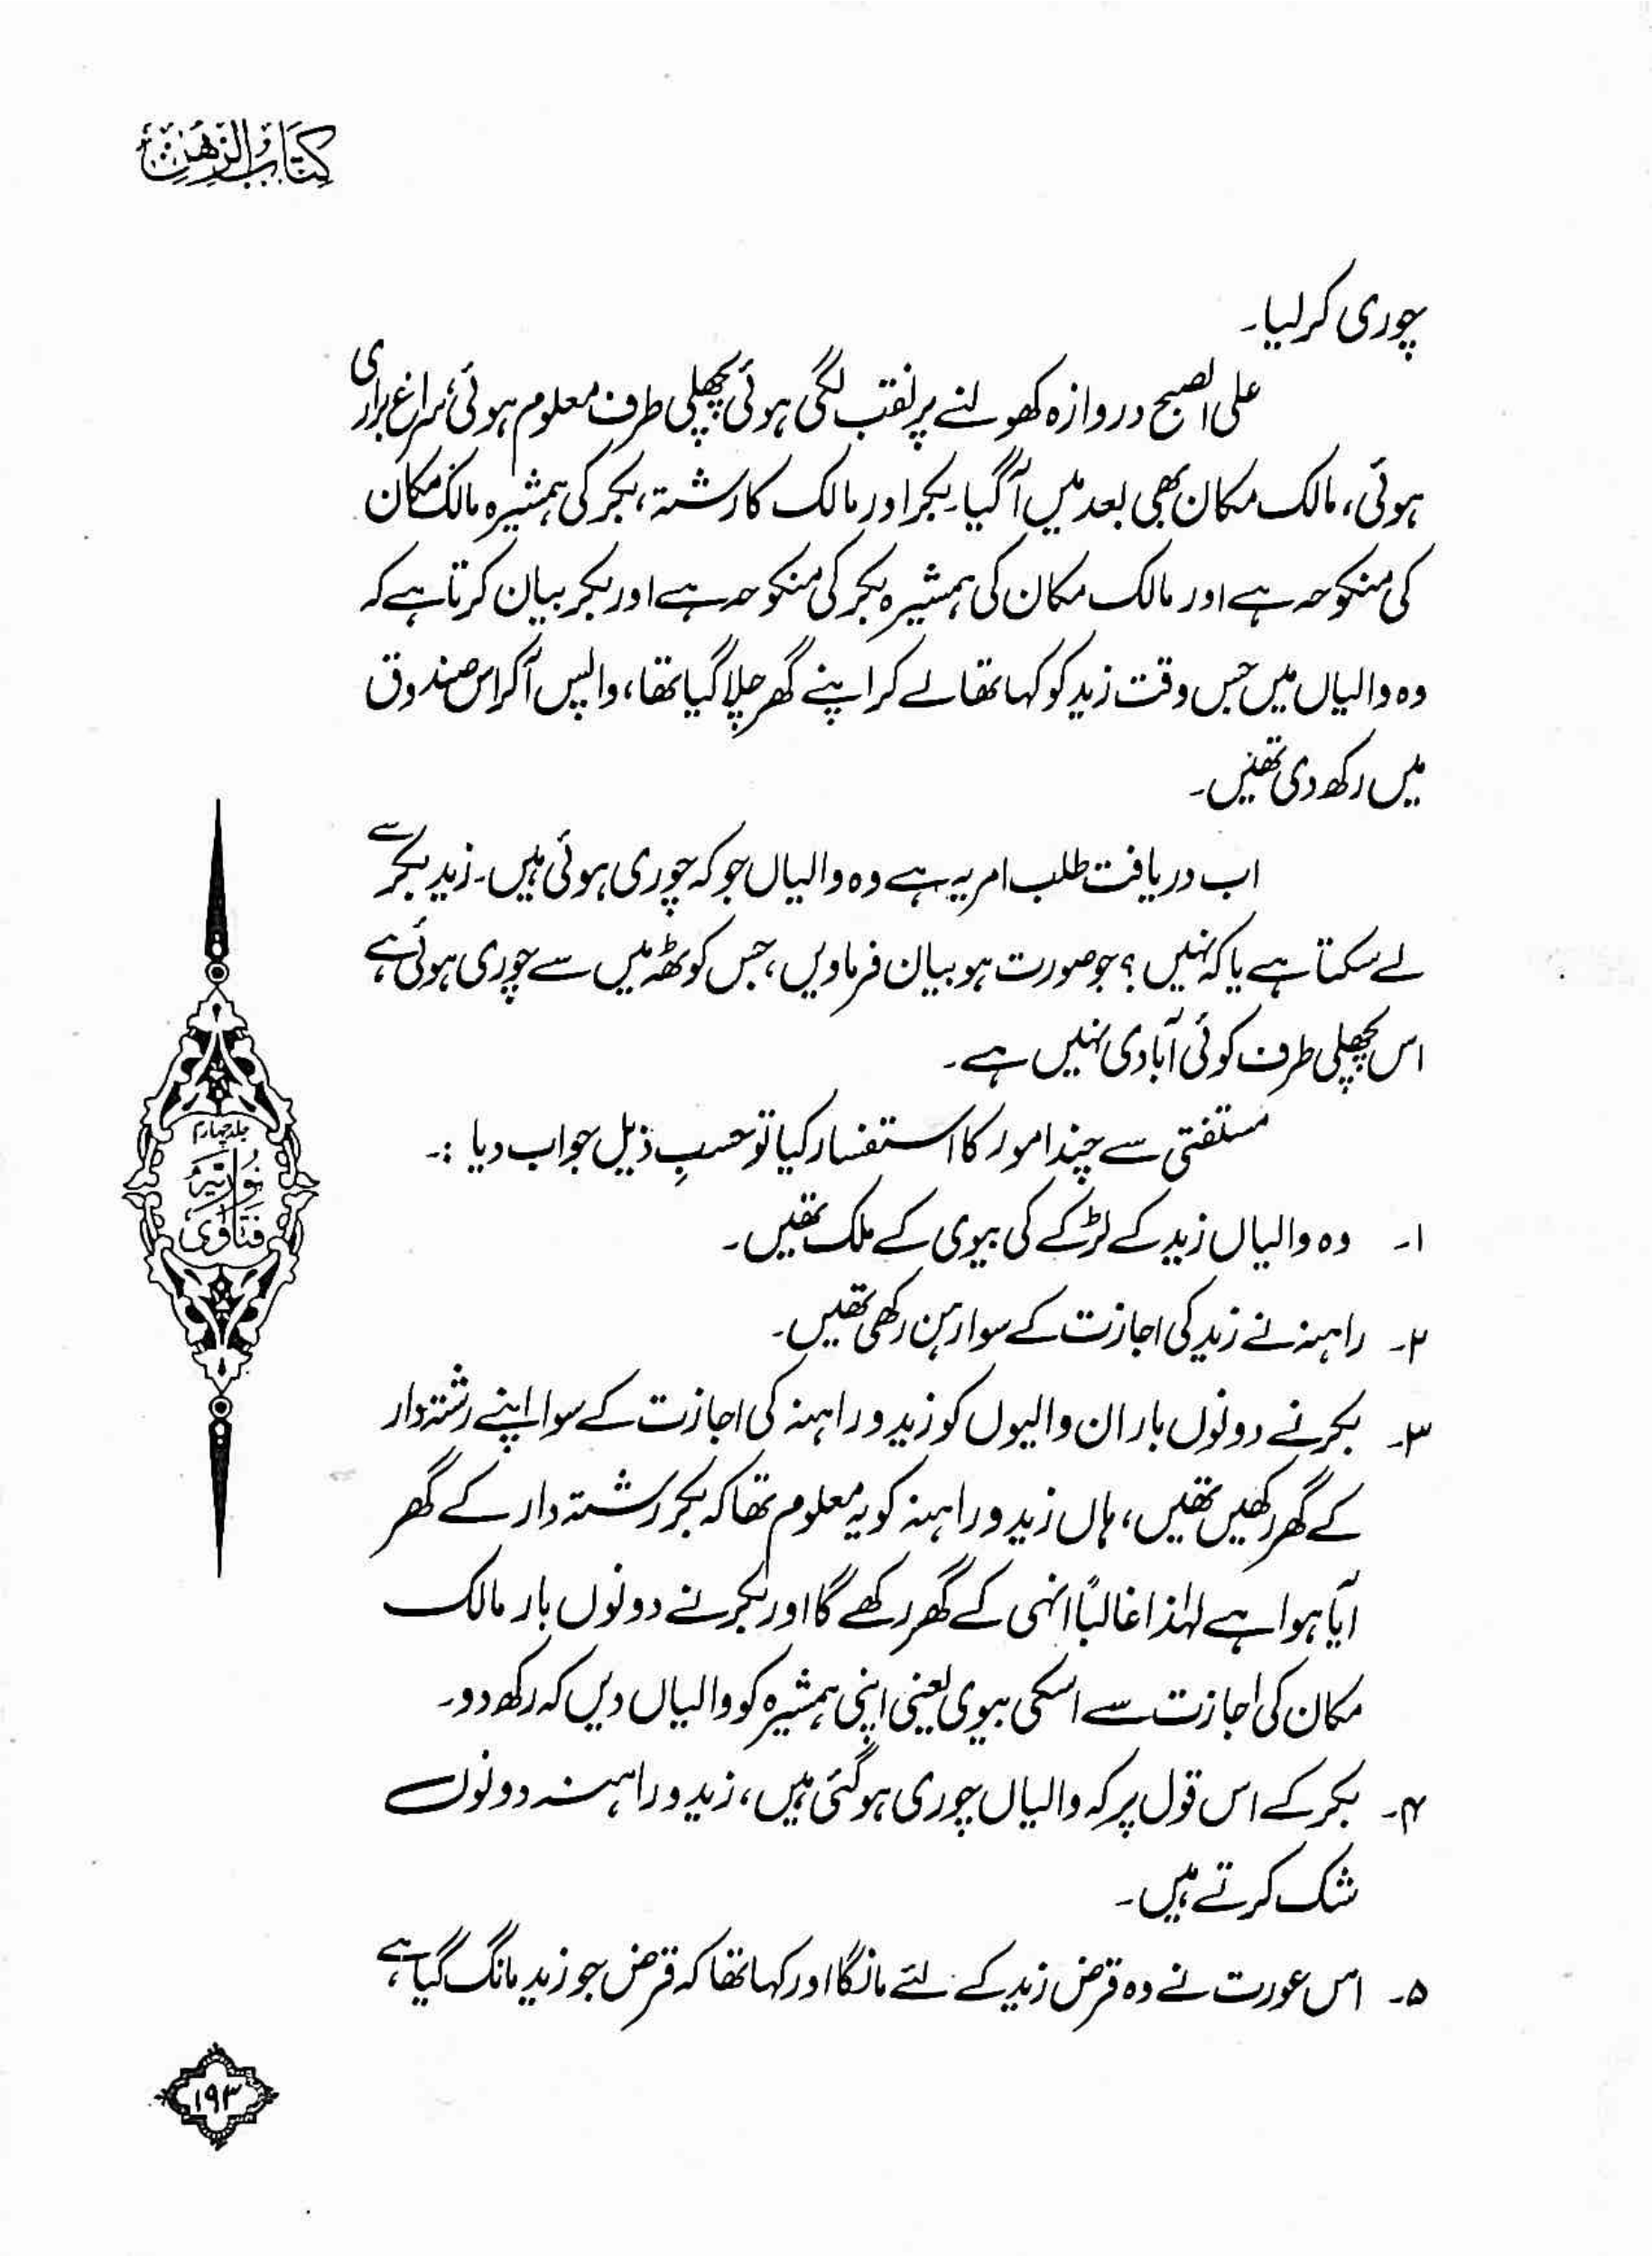 کتاب الرھن
چوری کر لیا۔
علی الصبح دروازہ کھولنے پر نقب لگی ہوئی پچھلی طرف معلوم ہوئی، سراغ براری
ہوئی، مالک مکان بھی بعد میں آ گیا۔ بکر اور مالک کا رشتہ، بکر کی ہمشیرہ مالک مکان
کی منکوحہ ہے اور مالک مکان کی ہمشیرہ بکر کی منکوحہ ہے اور بکر بیان کرتا ہے کہ
وہ والیاں میں جس وقت زید کو کہا تھا لے کر اپنے گھر چلا گیا تھا، واپس آ کر اس صندوق
میں رکھ دی تھیں۔
اب دریافت طلب امر یہ ہے وہ والیاں جو کہ چوری ہوئی ہیں۔ زید بکر سے
لے سکتا ہے یا کہ نہیں؟ جو صورت ہو بیان فرماویں، جس کوٹھہ میں سے چوری ہوئی ہے
اس پچھلی طرف کوئی آبادی نہیں ہے۔
مستفتی سے چند امور کا استفسار کیا تو حسبِ ذیل جواب دیا :۔
۱۔ وہ والیاں زید کے لڑکے کی بیوی کے ملک تھیں۔
۲۔ راہنہ نے زید کی اجازت کے سوا رہن رکھی تھیں۔
۳۔ بکر نے دونوں بار ان والیوں کو زید و راہنہ کی اجازت کے سوا اپنے رشتہ دار
کے گھر رکھیں تھیں، ہاں زید و راہنہ کو یہ معلوم تھا کہ بکر رشتہ دار کے گھر
آیا ہوا ہے لہٰذا غالباً انہی کے گھر رکھے گا اور بکر نے دونوں بار مالک
مکان کی اجازت سے اسکی بیوی یعنی اپنی ہمشیرہ کو والیاں دیں کہ رکھ دو۔
۴۔ بکر کے اس قول پر کہ والیاں چوری ہو گئی ہیں، زید و راہنہ دونوں
شک کرتے ہیں۔
۵۔ اس عورت نے وہ قرض زید کے لئے مانگا اور کہا تھا کہ قرض جو زید مانگ گیا ہے،
جلد چہارم
نوریہ
فتاویٰ
۱۹۳